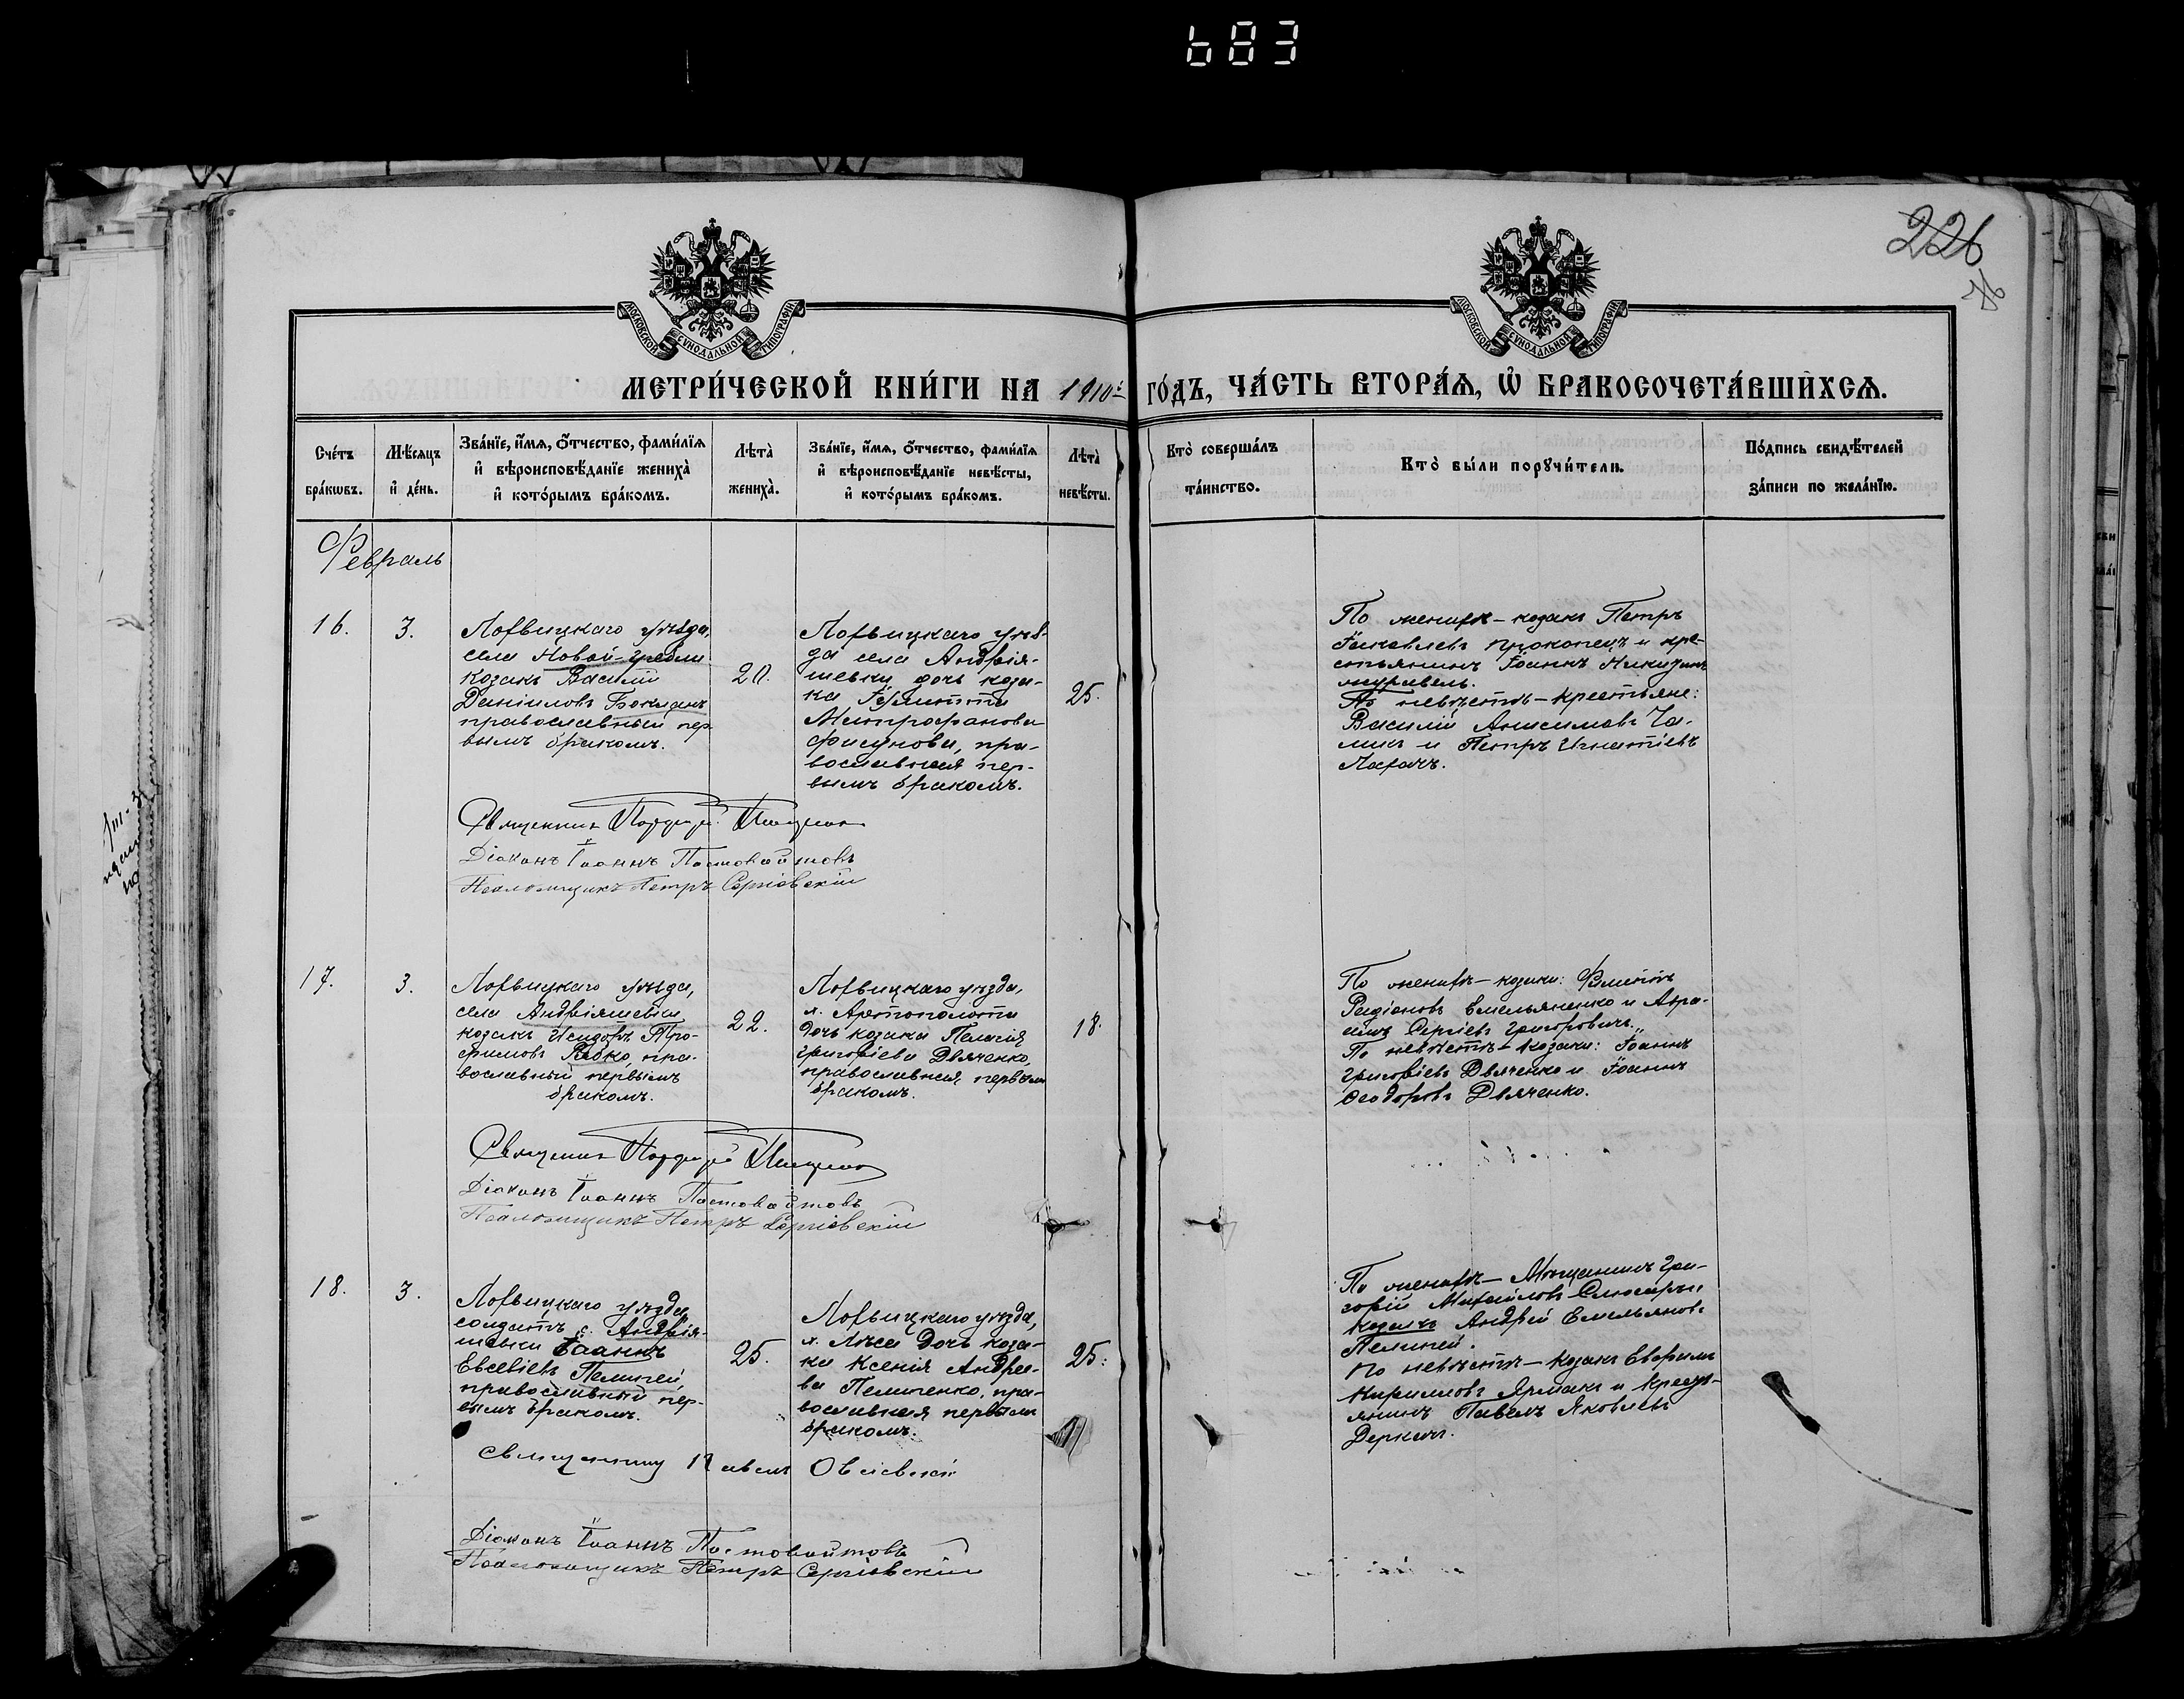 683
226
МОСКОВСКОЙ СѴНОДАЛЬНОЙ ТИПОГРАФІИ
МОСКОВСКОЙ СѴНОДАЛЬНОЙ ТИПОГРАФІИ
МЕТРИ́ЧЕСКОЙ КНИ́ГИ НА 1910й ГО́ДЪ, ЧА́СТЬ ВТОРА́Ѧ, Ѽ БРАКОСОЧЕТА́ВШИХСѦ.
Сче́тъ бра́кѡвъ.
Мѣ́сяцъ и҆ де́нь.
Зва́нїе, и҆́мѧ, ѻ҆́тчество, фами́лїѧ
и҆ вѣроисповѣ́данїе женихà
и҆ кото́рымъ бра́комъ.
Лѣтà женихà.
Зва́нїе, и҆́мѧ, ѻ҆́тчество, фами́лїѧ
и҆ вѣроисповѣ́данїе невѣ́сты,
и҆ кото́рымъ бра́комъ.
Лѣтà невѣ́сты.
Ктò соверша́лъ та́инство.
Ктò бы́ли порꙋчи́тели.
По́дпись свидѣ́телей за́писи по жела́нїю.
Февраль
16.
3.
Лохвицкаго уѣзда,
села Новой-Гребли
козакъ Василій
Даніиловъ Бокланъ
православный пер
вымъ бракомъ.
20.
Лохвицкаго уѣз-
да села Андрія-
шевки дочь коза-
ка
Митрофанова
Фисунова, пра-
вославная пер-
вымъ бракомъ.
25.
По женихѣ – козакъ Петръ
Іаковлевъ Прокопецъ и кре-
стьянинъ Іоаннъ Никитинъ
Журавель.
По невѣстѣ – крестьяне:
Василій Анисимовъ Ча-
лый и Петръ Игнатіевъ
Священникъ Порфирій
Діаконъ Іоаннъ Постовойтовъ
Псаломщикъ Петръ Сергіевскій
17.
3.
Лохвицкаго уѣзда,
села Андріяшевки
козакъ Исидоръ Тро-
фимовъ Рябко, пра-
вославный первымъ
бракомъ.
22.
Лохвицкаго уѣзда,
м. Артополота
дочь козака Пелагія
Григоріева Дьяченко,
православная, первымъ
бракомъ.
18.
По женихѣ – козаки: Филиппъ
Родіоновъ Емельяненко и Авра-
амъ Сергіевъ Григоровичъ.
По невѣстѣ – козаки: Іоаннъ
Григоріевъ Дьяченко и Іоаннъ
Ѳеодоровъ Дьяченко.
Священникъ Порфирій
Діаконъ Іоаннъ Постовойтовъ
Псаломщикъ Петръ Сергіевскій
18.
3.
Лохвицкаго уѣзда
солдатъ с. Андрія-
шевки Іоаннъ
Евсевіевъ Пелипей,
православный пер-
вымъ бракомъ.
25.
Лохвицкаго уѣзда,
м. Лѣса дочь коза-
ка Ксенія Андрее-
ва Пелипенко, пра-
вославная первымъ
бракомъ.
25.
По женихѣ – Мѣщанинъ Гри-
горій Михайловъ Слюсарь,
козакъ Андрей Емельяновъ
Пелипей.
По невѣстѣ – козакъ Ефремъ
Кирилловъ Ярмакъ и крест-
янинъ Павелъ Яковлевъ
Деркачъ.
Священникъ Павелъ Овсіевскій
Діаконъ Іоаннъ Постовойтовъ
Псаломщикъ Петръ Сергіевскій